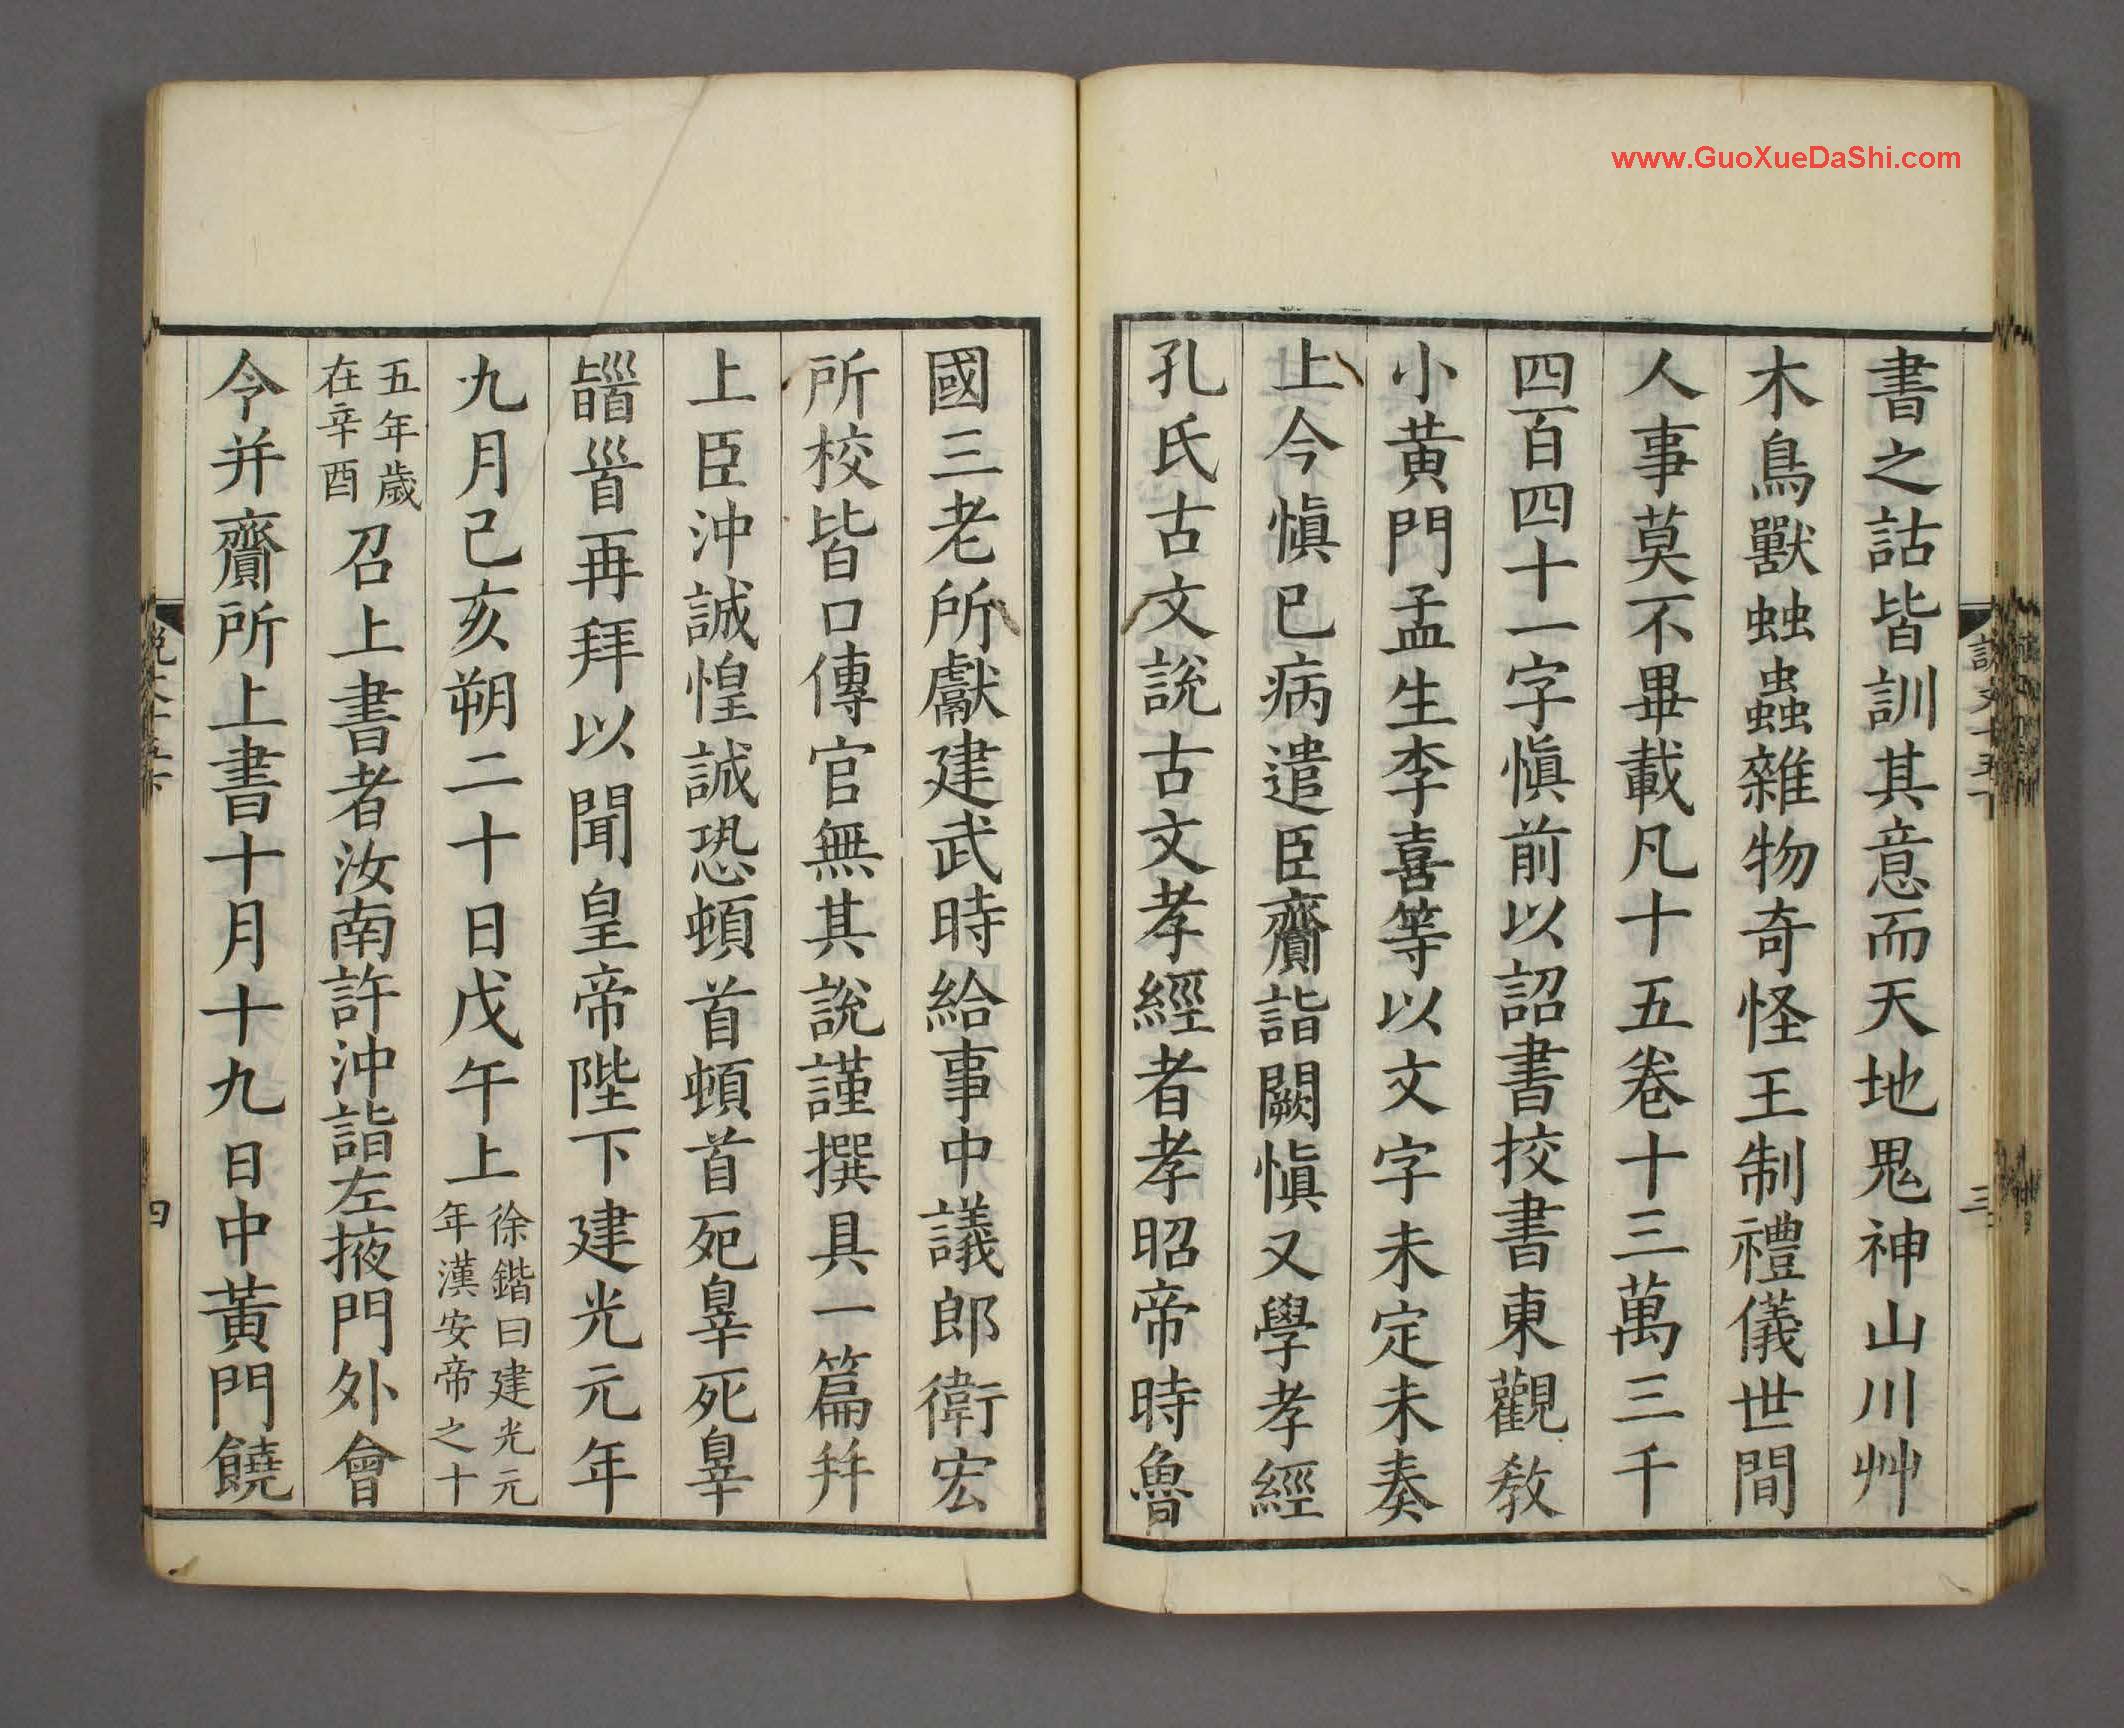 www.GuoXueDaShi.com
書之詁皆訓其意而天地鬼神山川艸
木鳥獸䖵蟲雜物奇怪王制禮儀世間
人事莫不畢載凡十五卷十三萬三千
四百四十一字愼前以詔書挍書東觀教
小黃門孟生李喜等以文字未定未奏
上今愼已病遣臣齎詣闕愼又學孝經
孔氏古文說古文孝經者孝昭帝時魯
國三老所獻建武時給事中議郎衛宏
所校皆口傳官無其說謹撰具一篇幷
上臣沖誠惶誠恐頓首頓首死辠死辠
䭫𩠐再拜以聞皇帝陛下建光元年
九月己亥朔二十日戊午上徐鍇曰建光元
年漢安帝之十
五年歲
在辛酉召上書者汝南許沖詣左掖門外會
令并齎所上書十月十九日中黃門饒
說文十五下
三
四